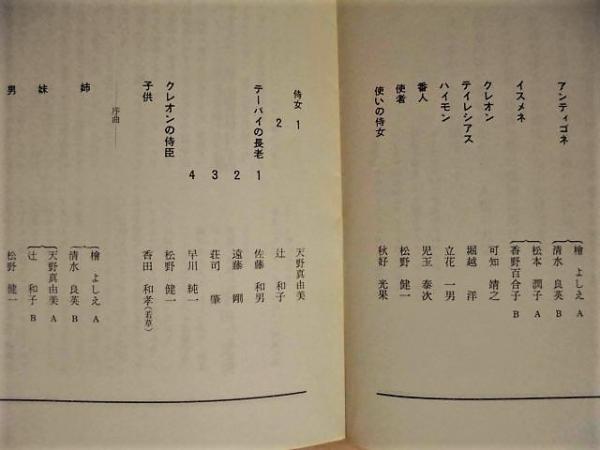 アンティゴネ 檜 よしえ A
清水 良英 B
イスメネ 松本 潤子 A
香野百合子 B
クレオン 可知 靖之
テイレシアス 堀越 洋
ハイモン 立花 一男
番人 児玉 泰次
使者 松野 健一
使いの侍女 秋好 光果
侍女 1 天野真由美
2 辻 和子
テーバイの長老 1 佐藤 和男
2 遠藤 剛
3 荘司 肇
4 早川 純一
クレオンの侍臣 松野 健一
子供 香田 和孝(若草)
――序曲――
姉 檜 よしえ A
清水 良英 B
妹 天野真由美 A
辻 和子 B
男 松野 健一